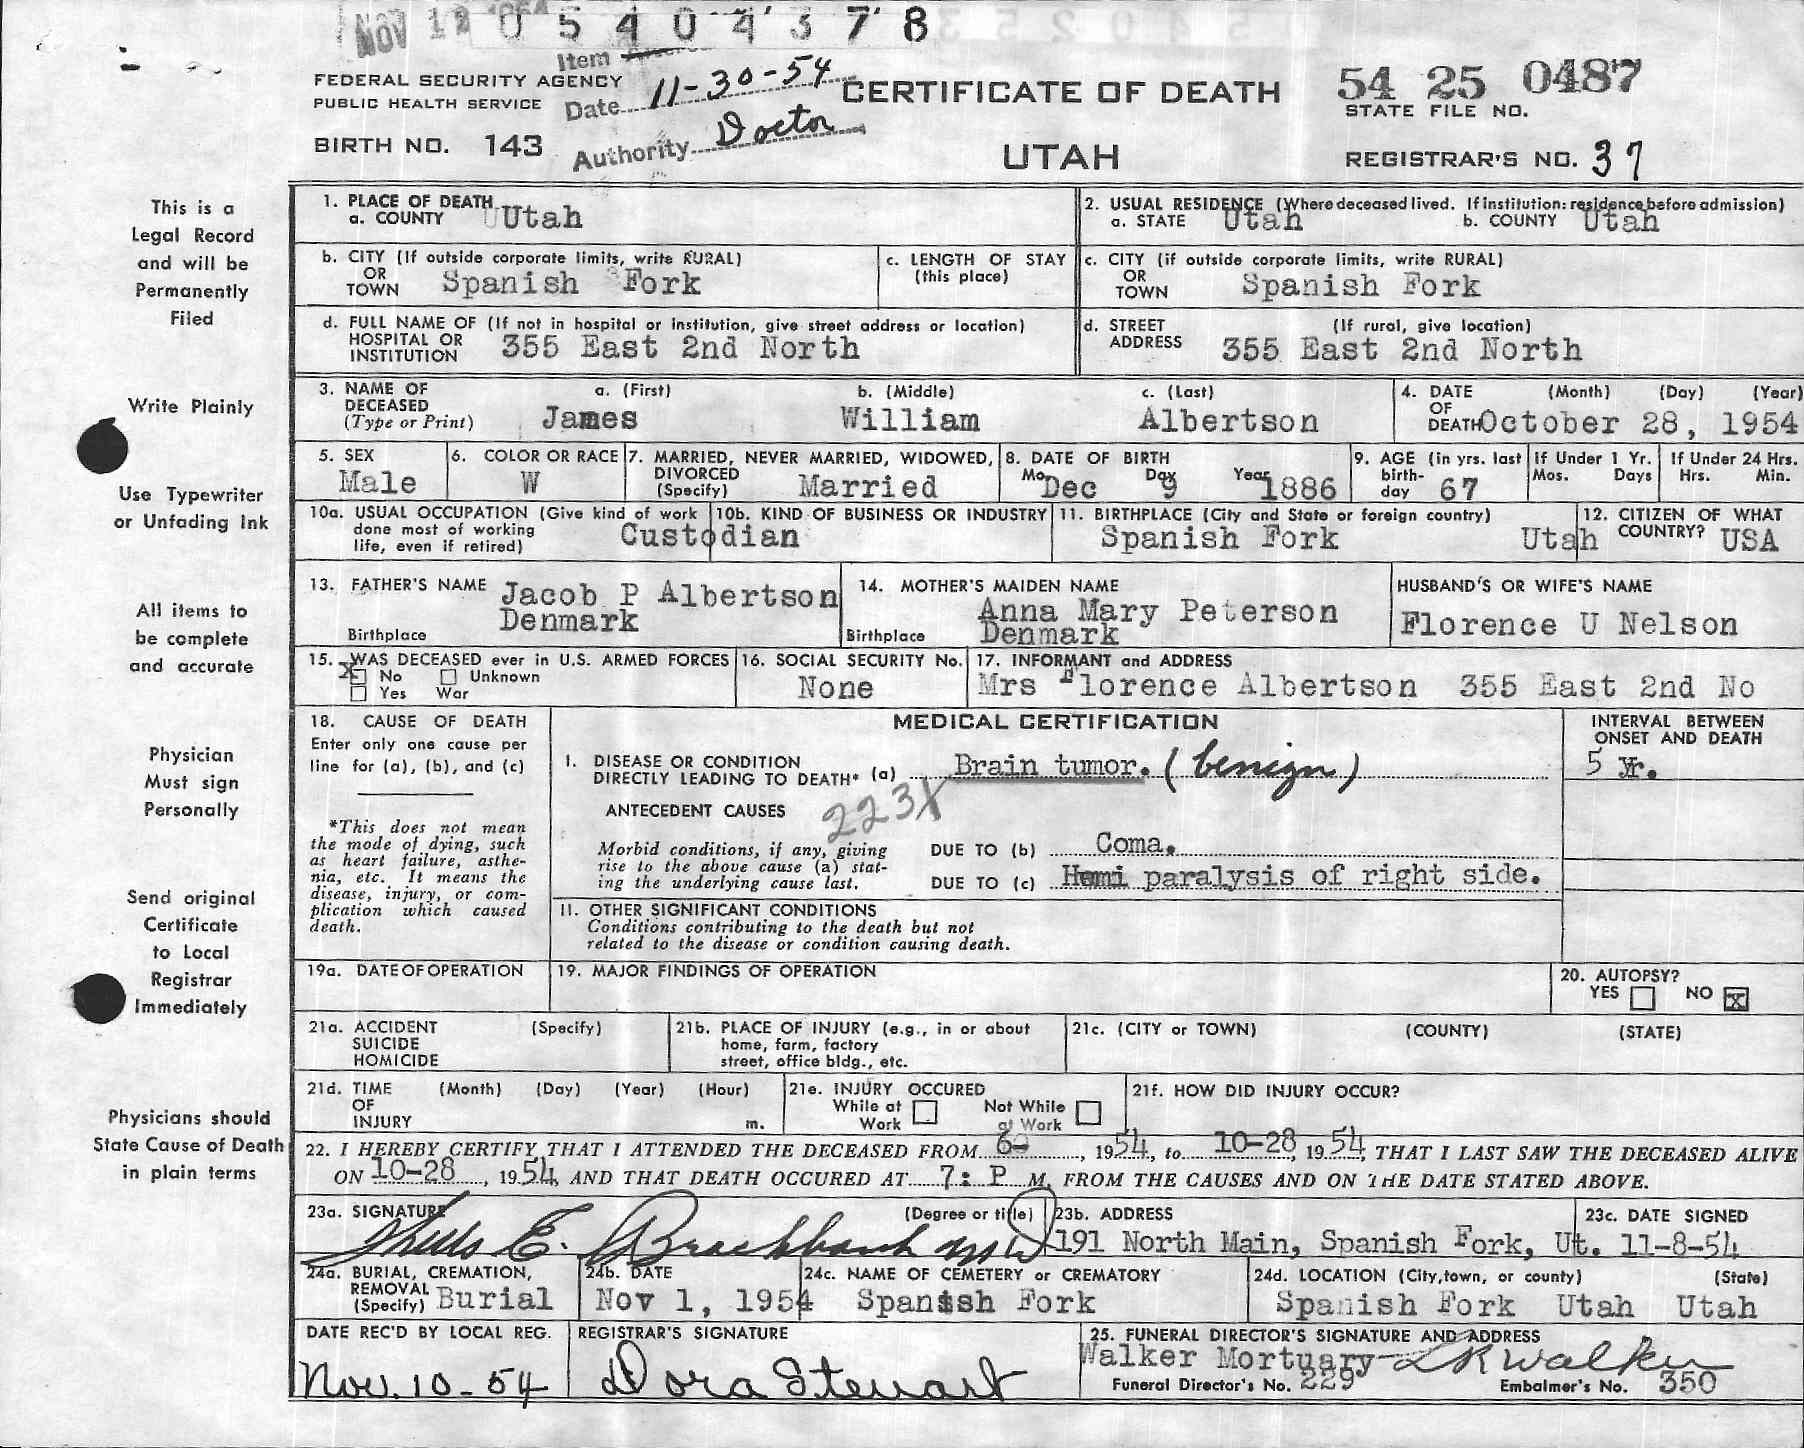 NOV 12 1954 0 5 4 0 4 3 7 8
Item
FEDERAL SECURITY AGENCY
PUBLIC HEALTH SERVICE
Date 11-30-54
Authority Doctor
BIRTH NO. 143
CERTIFICATE OF DEATH
UTAH
54 25 0487
STATE FILE NO.
REGISTRAR'S NO. 37
This is a
Legal Record
and will be
Permanently
Filed
Write Plainly
Use Typewriter
or Unfading Ink
All items to
be complete
and accurate
Physician
Must sign
Personally
Send original
Certificate
to Local
Registrar
Immediately
Physicians should
State Cause of Death
in plain terms
1. PLACE OF DEATH
a. COUNTY Utah
2. USUAL RESIDENCE (Where deceased lived. If institution: residence before admission)
a. STATE Utah b. COUNTY Utah
b. CITY (If outside corporate limits, write RURAL)
OR
TOWN Spanish Fork
c. LENGTH OF STAY
(this place)
c. CITY (if outside corporate limits, write RURAL)
OR
TOWN Spanish Fork
d. FULL NAME OF (If not in hospital or institution, give street address or location)
HOSPITAL OR
INSTITUTION 355 East 2nd North
d. STREET (If rural, give location)
ADDRESS 355 East 2nd North
3. NAME OF a. (First) b. (Middle) c. (Last)
DECEASED
(Type or Print) James William Albertson
4. DATE (Month) (Day) (Year)
OF
DEATH October 28, 1954
5. SEX
Male
6. COLOR OR RACE
W
7. MARRIED, NEVER MARRIED, WIDOWED,
DIVORCED
(Specify) Married
8. DATE OF BIRTH
Mo. Dec Day 9 Year 1886
9. AGE (in yrs. last
birth-
day 67
If Under 1 Yr.
Mos. Days
If Under 24 Hrs.
Hrs. Min.
10a. USUAL OCCUPATION (Give kind of work
done most of working
life, even if retired) Custodian
10b. KIND OF BUSINESS OR INDUSTRY
11. BIRTHPLACE (City and State or foreign country)
Spanish Fork Utah
12. CITIZEN OF WHAT
COUNTRY? USA
13. FATHER'S NAME Jacob P Albertson
Birthplace Denmark
14. MOTHER'S MAIDEN NAME
Anna Mary Peterson
Birthplace Denmark
HUSBAND'S OR WIFE'S NAME
Florence U Nelson
15. WAS DECEASED ever in U.S. ARMED FORCES
X No Unknown
Yes War
16. SOCIAL SECURITY No.
None
17. INFORMANT and ADDRESS
Mrs Florence Albertson 355 East 2nd No
18. CAUSE OF DEATH
Enter only one cause per
line for (a), (b), and (c)
*This does not mean
the mode of dying, such
as heart failure, asthe-
nia, etc. It means the
disease, injury, or com-
plication which caused
death.
MEDICAL CERTIFICATION
INTERVAL BETWEEN
ONSET AND DEATH
I. DISEASE OR CONDITION
DIRECTLY LEADING TO DEATH* (a) Brain tumor. (benign) 5 yr.
ANTECEDENT CAUSES 223X
Morbid conditions, if any, giving
rise to the above cause (a) stat-
ing the underlying cause last.
DUE TO (b) Coma.
DUE TO (c) Hemi paralysis of right side.
II. OTHER SIGNIFICANT CONDITIONS
Conditions contributing to the death but not
related to the disease or condition causing death.
19a. DATE OF OPERATION
19. MAJOR FINDINGS OF OPERATION
20. AUTOPSY?
YES NO X
21a. ACCIDENT (Specify)
SUICIDE
HOMICIDE
21b. PLACE OF INJURY (e.g., in or about
home, farm, factory
street, office bldg., etc.
21c. (CITY or TOWN) (COUNTY) (STATE)
21d. TIME (Month) (Day) (Year) (Hour)
OF
INJURY m.
21e. INJURY OCCURED
While at Not While
Work at Work
21f. HOW DID INJURY OCCUR?
22. I HEREBY CERTIFY THAT I ATTENDED THE DECEASED FROM 6- , 1954, to 10-28, 1954, THAT I LAST SAW THE DECEASED ALIVE
ON 10-28, 1954, AND THAT DEATH OCCURED AT 7: P M, FROM THE CAUSES AND ON THE DATE STATED ABOVE.
23a. SIGNATURE (Degree or title)
E. Brockbank MD
23b. ADDRESS
191 North Main, Spanish Fork, Ut.
23c. DATE SIGNED
11-8-54
24a. BURIAL, CREMATION,
REMOVAL
(Specify) Burial
24b. DATE
Nov 1, 1954
24c. NAME OF CEMETERY or CREMATORY
Spanish Fork
24d. LOCATION (City, town, or county) (State)
Spanish Fork Utah Utah
DATE REC'D BY LOCAL REG.
Nov. 10-54
REGISTRAR'S SIGNATURE
Dora Stewart
25. FUNERAL DIRECTOR'S SIGNATURE AND ADDRESS
Walker Mortuary - LR Walker
Funeral Director's No. 229 Embalmer's No. 350